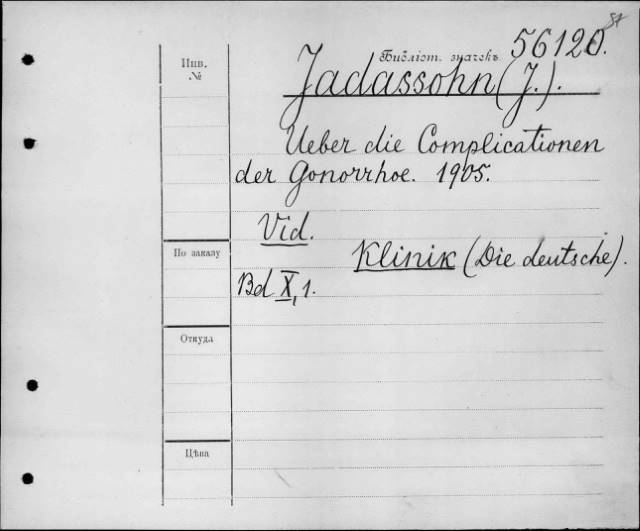 Инв.
№
Библіот. значекъ 56120.
Jadassohn (J.).
Ueber die Complicationen
der Gonorrhoe. 1905.
Vid.
Klinik (Die deutsche).
Bd X, 1.
По заказу
Откуда
Цѣна